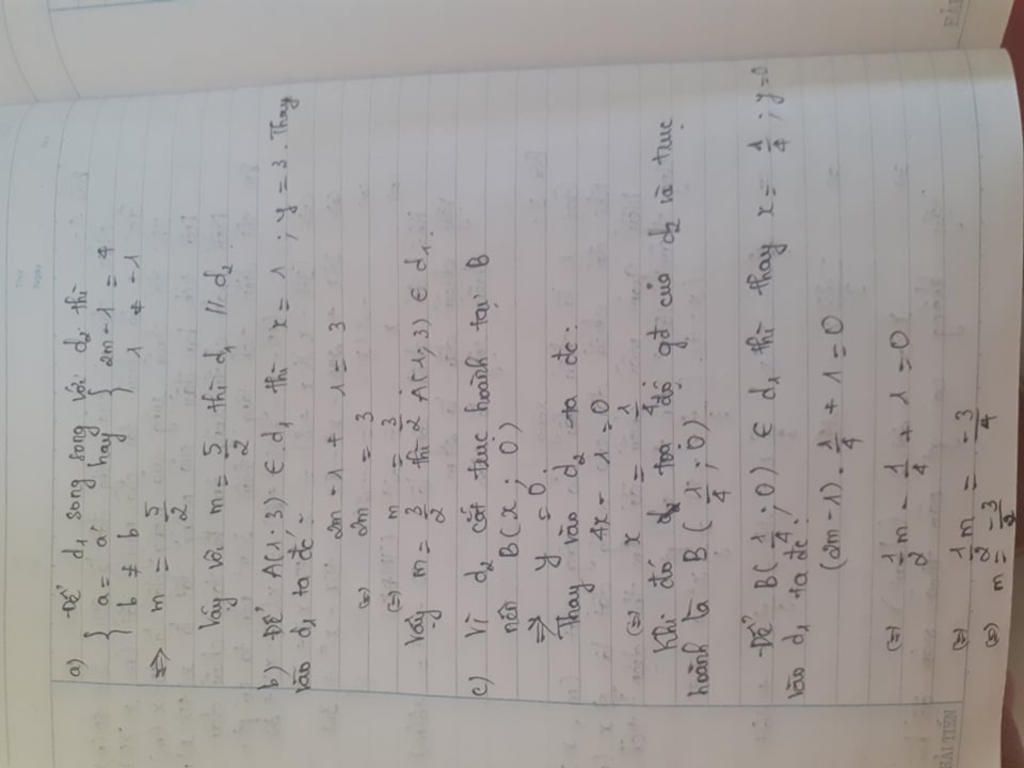 a) Để d₁ song song với d₂ thì
{ a = a' hay { 2m-1 = 4
{ b ≠ b' { 1 ≠ -1
=> m = 5/2
Vậy với m = 5/2 thì d₁ // d₂
b) Để A(1;3) ∈ d₁ thì x = 1 ; y = 3. Thay
vào d₁ ta đc:
2m - 1 + 1 = 3
(=) 2m = 3
(=) m = 3/2
Vậy m = 3/2 thì A(1;3) ∈ d₁.
c) Vì d₂ cắt trục hoành tại B
nên B(x; 0)
=> y = 0
Thay vào d₂ ta đc:
4x - 1 = 0
(=) x = 1/4
Khi đó toạ độ gđ của d₂ và trục
hoành là B (1/4; 0)
Để B(1/4; 0) ∈ d₁ thì thay x = 1/4 ; y = 0
vào d₁ ta đc:
(2m-1). 1/4 + 1 = 0
(=) 1/2 m - 1/4 + 1 = 0
(=) 1/2 m = -3/4
(=) m = -3/2
HẢI TIẾN